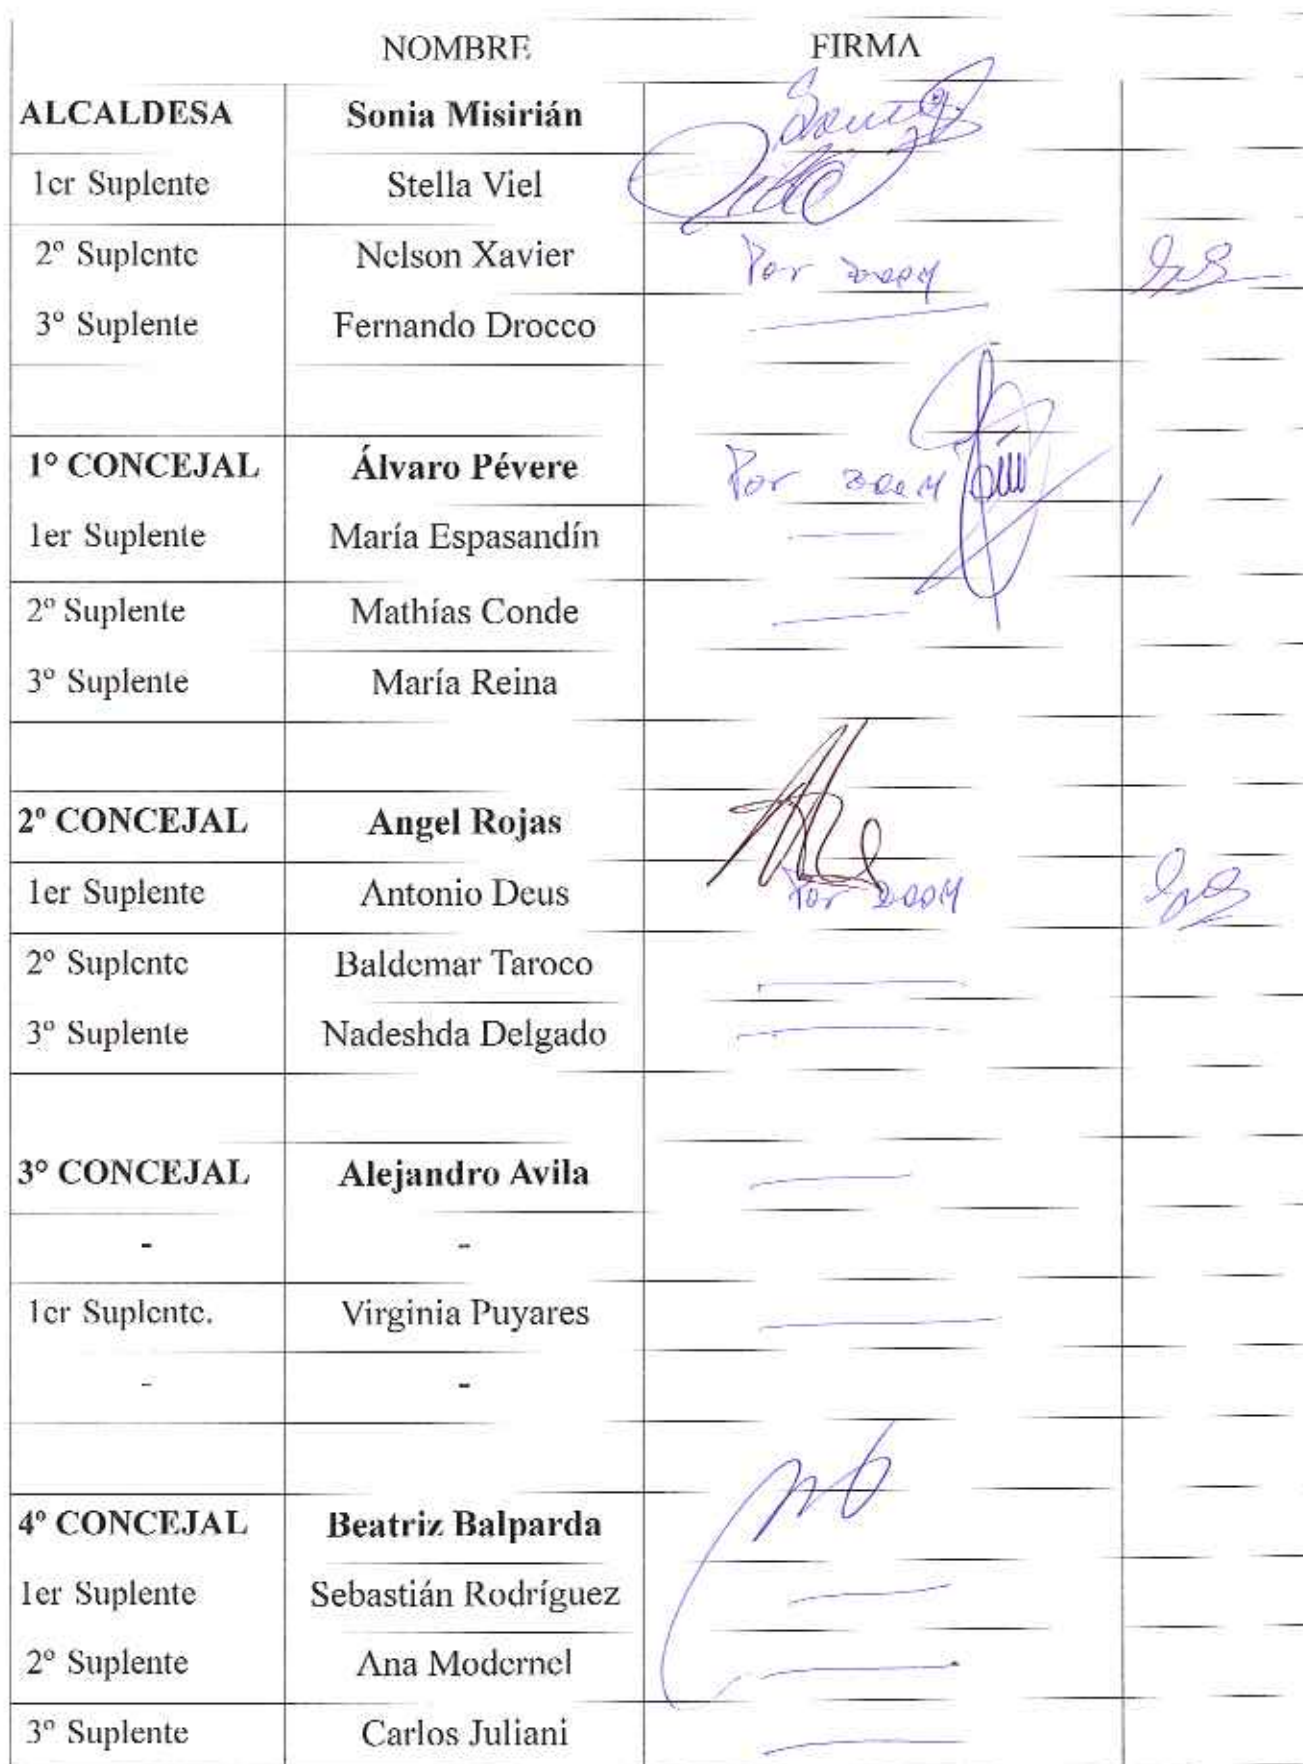 NOMBRE FIRMA
ALCALDESA Sonia Misirián
1er Suplente Stella Viel
2º Suplente Nelson Xavier Por zoom
3º Suplente Fernando Drocco
1º CONCEJAL Álvaro Pévere Por zoom
1er Suplente María Espasandín
2º Suplente Mathías Conde
3º Suplente María Reina
2º CONCEJAL Angel Rojas
1er Suplente Antonio Deus Por zoom
2º Suplente Baldemar Taroco
3º Suplente Nadeshda Delgado
3º CONCEJAL Alejandro Avila
- -
1er Suplente. Virginia Puyares
- -
4º CONCEJAL Beatriz Balparda
1er Suplente Sebastián Rodríguez
2º Suplente Ana Modernel
3º Suplente Carlos Juliani